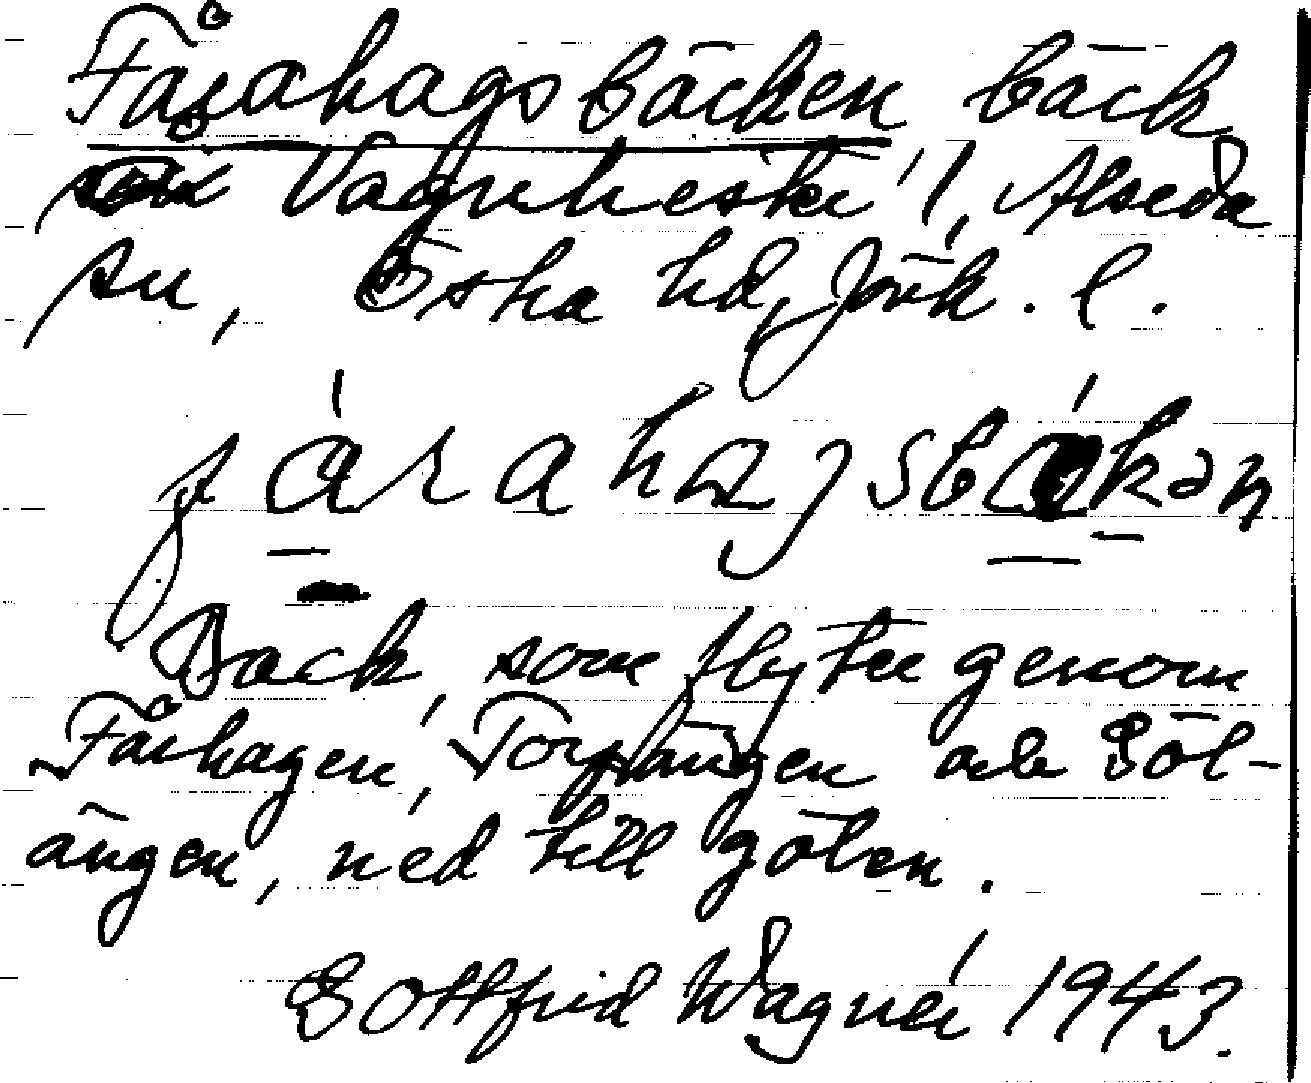 Fårahagsbäcken bäck
Vagnhester 1, Alseda
sn, Östra hd, Jönk. l.
fárahagsbä́kən
Bäck, som flyter genom
Fårhagen, Torpängen och Göl-
ängen, ned till gölen.
Gottfrid Wagnér 1943.